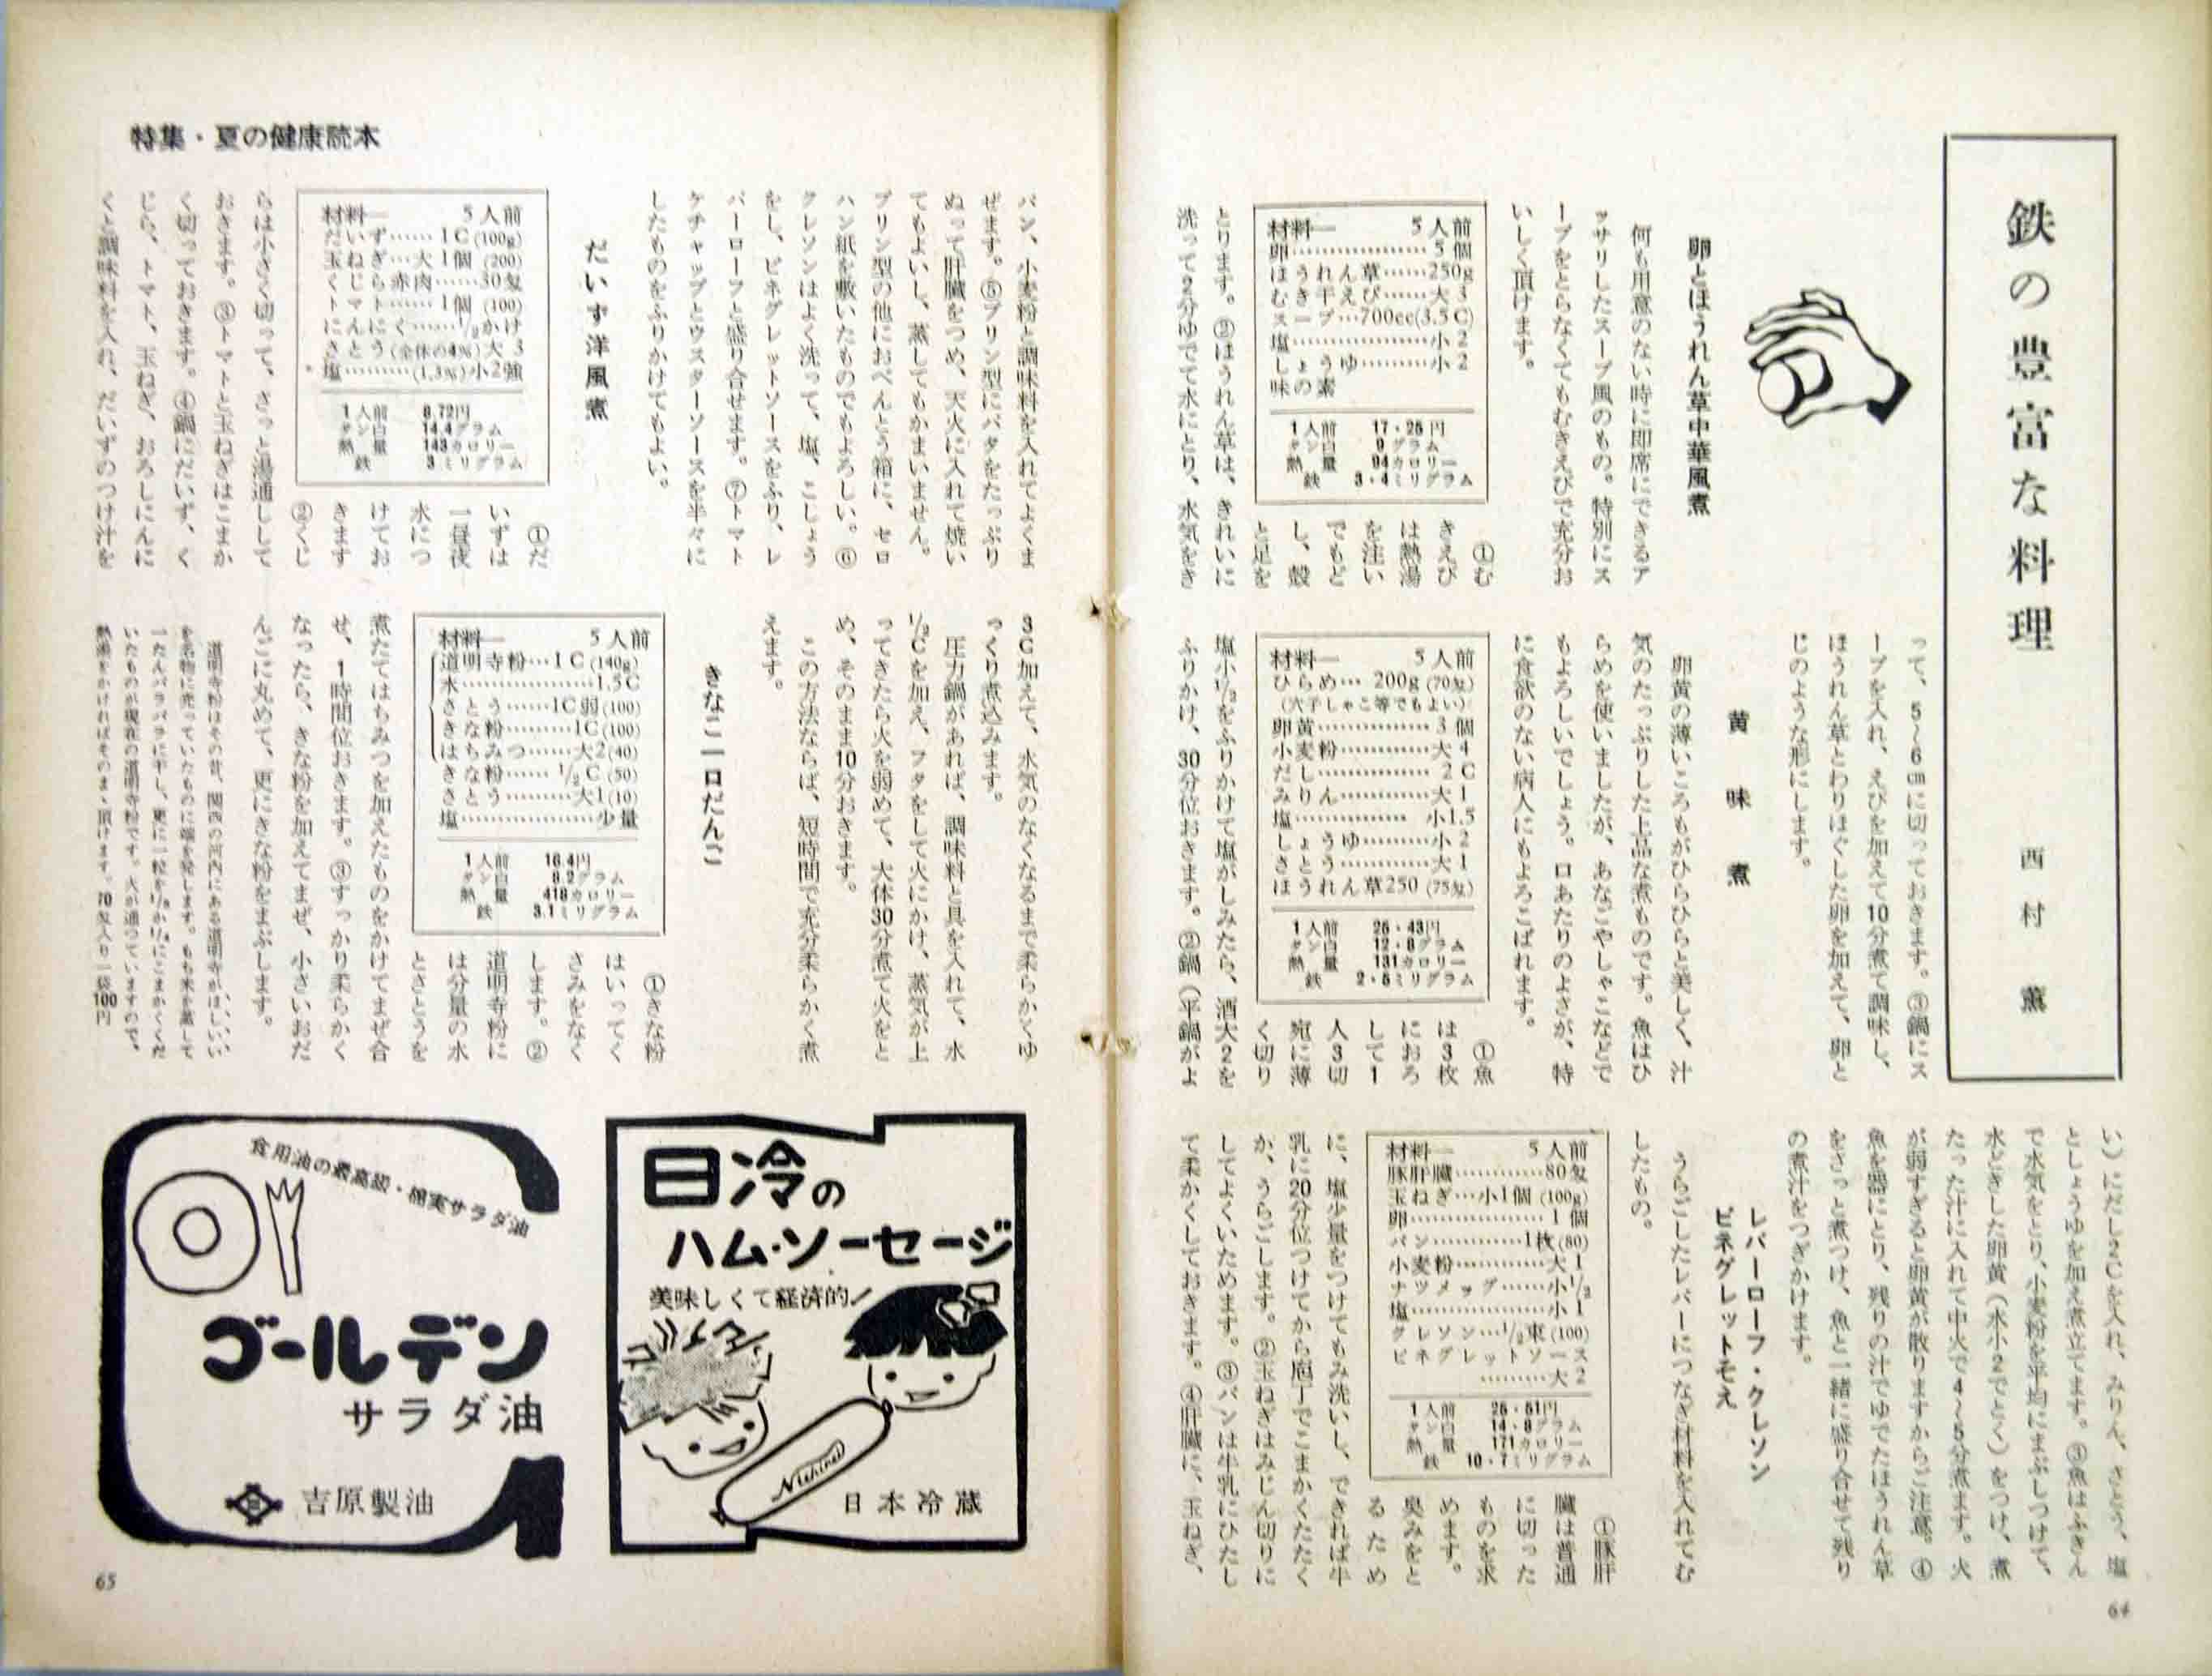 鉄の豊富な料理
西村 薫
卵とほうれん草中華風煮
何も用意のない時に即席にできるア
ッサリしたスープ風のもの。特別にス
ープをとらなくてもむきえびで充分お
いしく頂けます。
材料― 5人前
卵………………5個
ほうれん草……250g
むき干えび……大3
スープ…700cc(3.5C)
塩………………小2
しょうゆ………小2
味の素
1人前 17・25円
タン白 9グラム
熱量 94カロリー
鉄 3・4ミリグラム
①む
きえび
は熱湯
を注い
でもど
し、殻
と足を
とります。②ほうれん草は、きれいに
洗って2分ゆでて水にとり、水気をき
って、5~6㎝に切っておきます。③鍋にス
ープを入れ、えびを加えて10分煮て調味し、
ほうれん草とわりほぐした卵を加えて、卵と
じのような形にします。
黄味煮
卵黄の薄いころもがひらひらと美しく、汁
気のたっぷりした上品な煮ものです。魚はひ
らめを使いましたが、あなごやしゃこなどで
もよろしいでしょう。口あたりのよさが、特
に食欲のない病人にもよろこばれます。
材料― 5人前
ひらめ… 200g(70匁)
(穴子しゃこ等でもよい)
卵黄……………3個
小麦粉…………大4
だし……………2C
みりん…………大1
塩……………小1.5
しょうゆ………小2
さとう…………大1
ほうれん草250(75匁)
1人前 26・43円
タン白 12・8グラム
熱量 131カロリー
鉄 2・5ミリグラム
①魚
は3枚
におろ
して1
人3切
宛に薄
く切り
塩小1/2をふりかけて塩がしみたら、酒大2を
ふりかけ、30分位おきます。②鍋(平鍋がよ
い)にだし2Cを入れ、みりん、さとう、塩
としょうゆを加え煮立てます。③魚はふきん
で水気をとり、小麦粉を平均にまぶしつけて、
水どきした卵黄(水小2でとく)をつけ、煮
たった汁に入れて中火で4~5分煮ます。火
が弱すぎると卵黄が散りますからご注意。④
魚を器にとり、残りの汁でゆでたほうれん草
をさっと煮つけ、魚と一緒に盛り合せて残り
の煮汁をつぎかけます。
レバーローフ・クレソン
ビネグレットそえ
うらごしたレバーにつなぎ材料を入れてむ
したもの。
材料― 5人前
豚肝臓…………80匁
玉ねぎ…小1個(100g)
卵………………1個
パン…………1枚(80)
小麦粉…………大1
ナツメッグ……小1/3
塩………………小1
クレソン…1/2束(100)
ビネグレットソース
………大2
1人前 26・51円
タン白 14・8グラム
熱量 171カロリー
鉄 10・7ミリグラム
①豚肝
臓は普通
に切った
ものを求
めます。
臭みをと
るため
に、塩少量をつけてもみ洗いし、できれば牛
乳に20分位つけてから庖丁でこまかくたたく
か、うらごします。②玉ねぎはみじん切りに
してよくいためます。③パンは牛乳にひたし
て柔かくしておきます。④肝臓に、玉ねぎ、
64
特集・夏の健康読本
パン、小麦粉と調味料を入れてよくま
ぜます。⑤プリン型にバタをたっぷり
ぬって肝臓をつめ、天火に入れて焼い
てもよいし、蒸してもかまいません。
プリン型の他におべんとう箱に、セロ
ハン紙を敷いたものでもよろしい。⑥
クレソンはよく洗って、塩、こしょう
をし、ビネグレットソースをふり、レ
バーローフと盛り合せます。⑦トマト
ケチャップとウスターソースを半々に
したものをふりかけてもよい。
だいず洋風煮
材料― 5人前
だいず……1C(100g)
玉ねぎ…大1個(200)
くじら…赤肉……30匁
トマト……1個(100)
にんにく……1/2かけ
さとう(全体の4%)大3
塩………(1.3%)小2強
1人前 8.72円
タン白 14.4グラム
熱量 143カロリー
鉄 3ミリグラム
①だ
いずは
一昼夜
水につ
けてお
きます
②くじ
らは小さく切って、さっと湯通しして
おきます。③トマトと玉ねぎはこまか
く切っておきます。④鍋にだいず、く
じら、トマト、玉ねぎ、おろしにんに
くと調味料を入れ、だいずのつけ汁を
3C加えて、水気のなくなるまで柔らかくゆ
っくり煮込みます。
圧力鍋があれば、調味料と具を入れて、水
1/2Cを加え、フタをして火にかけ、蒸気が上
ってきたら火を弱めて、大体30分煮て火をと
め、そのまま10分おきます。
この方法ならば、短時間で充分柔らかく煮
えます。
きなこ一口だんご
材料― 5人前
道明寺粉…1C(140g)
水………………1.5C
さとう……1C弱(100)
きな粉………1C(100)
はちみつ……大2(40)
きな粉……1/2C(50)
さとう………大1(10)
塩………………少量
1人前 16.4円
タン白 8.2グラム
熱量 418カロリー
鉄 3.1ミリグラム
①きな粉
はいってく
さみをなく
します。②
道明寺粉に
は分量の水
とさとうを
煮たてはちみつを加えたものをかけてまぜ合
せ、1時間位おきます。③すっかり柔らかく
なったら、きな粉を加えてまぜ、小さいおだ
んごに丸めて、更にきな粉をまぶします。
道明寺粉はその昔、関西の河内にある道明寺がほしいい
を名物に売っていたものに端を発します。もち米を蒸して
一たんバラバラに干し、更に一粒を1/3か1/4にこまかくくだ
いたものが現在の道明寺粉です。火が通っていますので、
熱湯をかければそのまゝ頂けます。70匁入り一袋100円
日冷の
ハム・ソーセージ
美味しくて経済的!
Nichirei
日本冷蔵
食用油の最高級・綿実サラダ油
ゴールデン
サラダ油
吉原製油
65